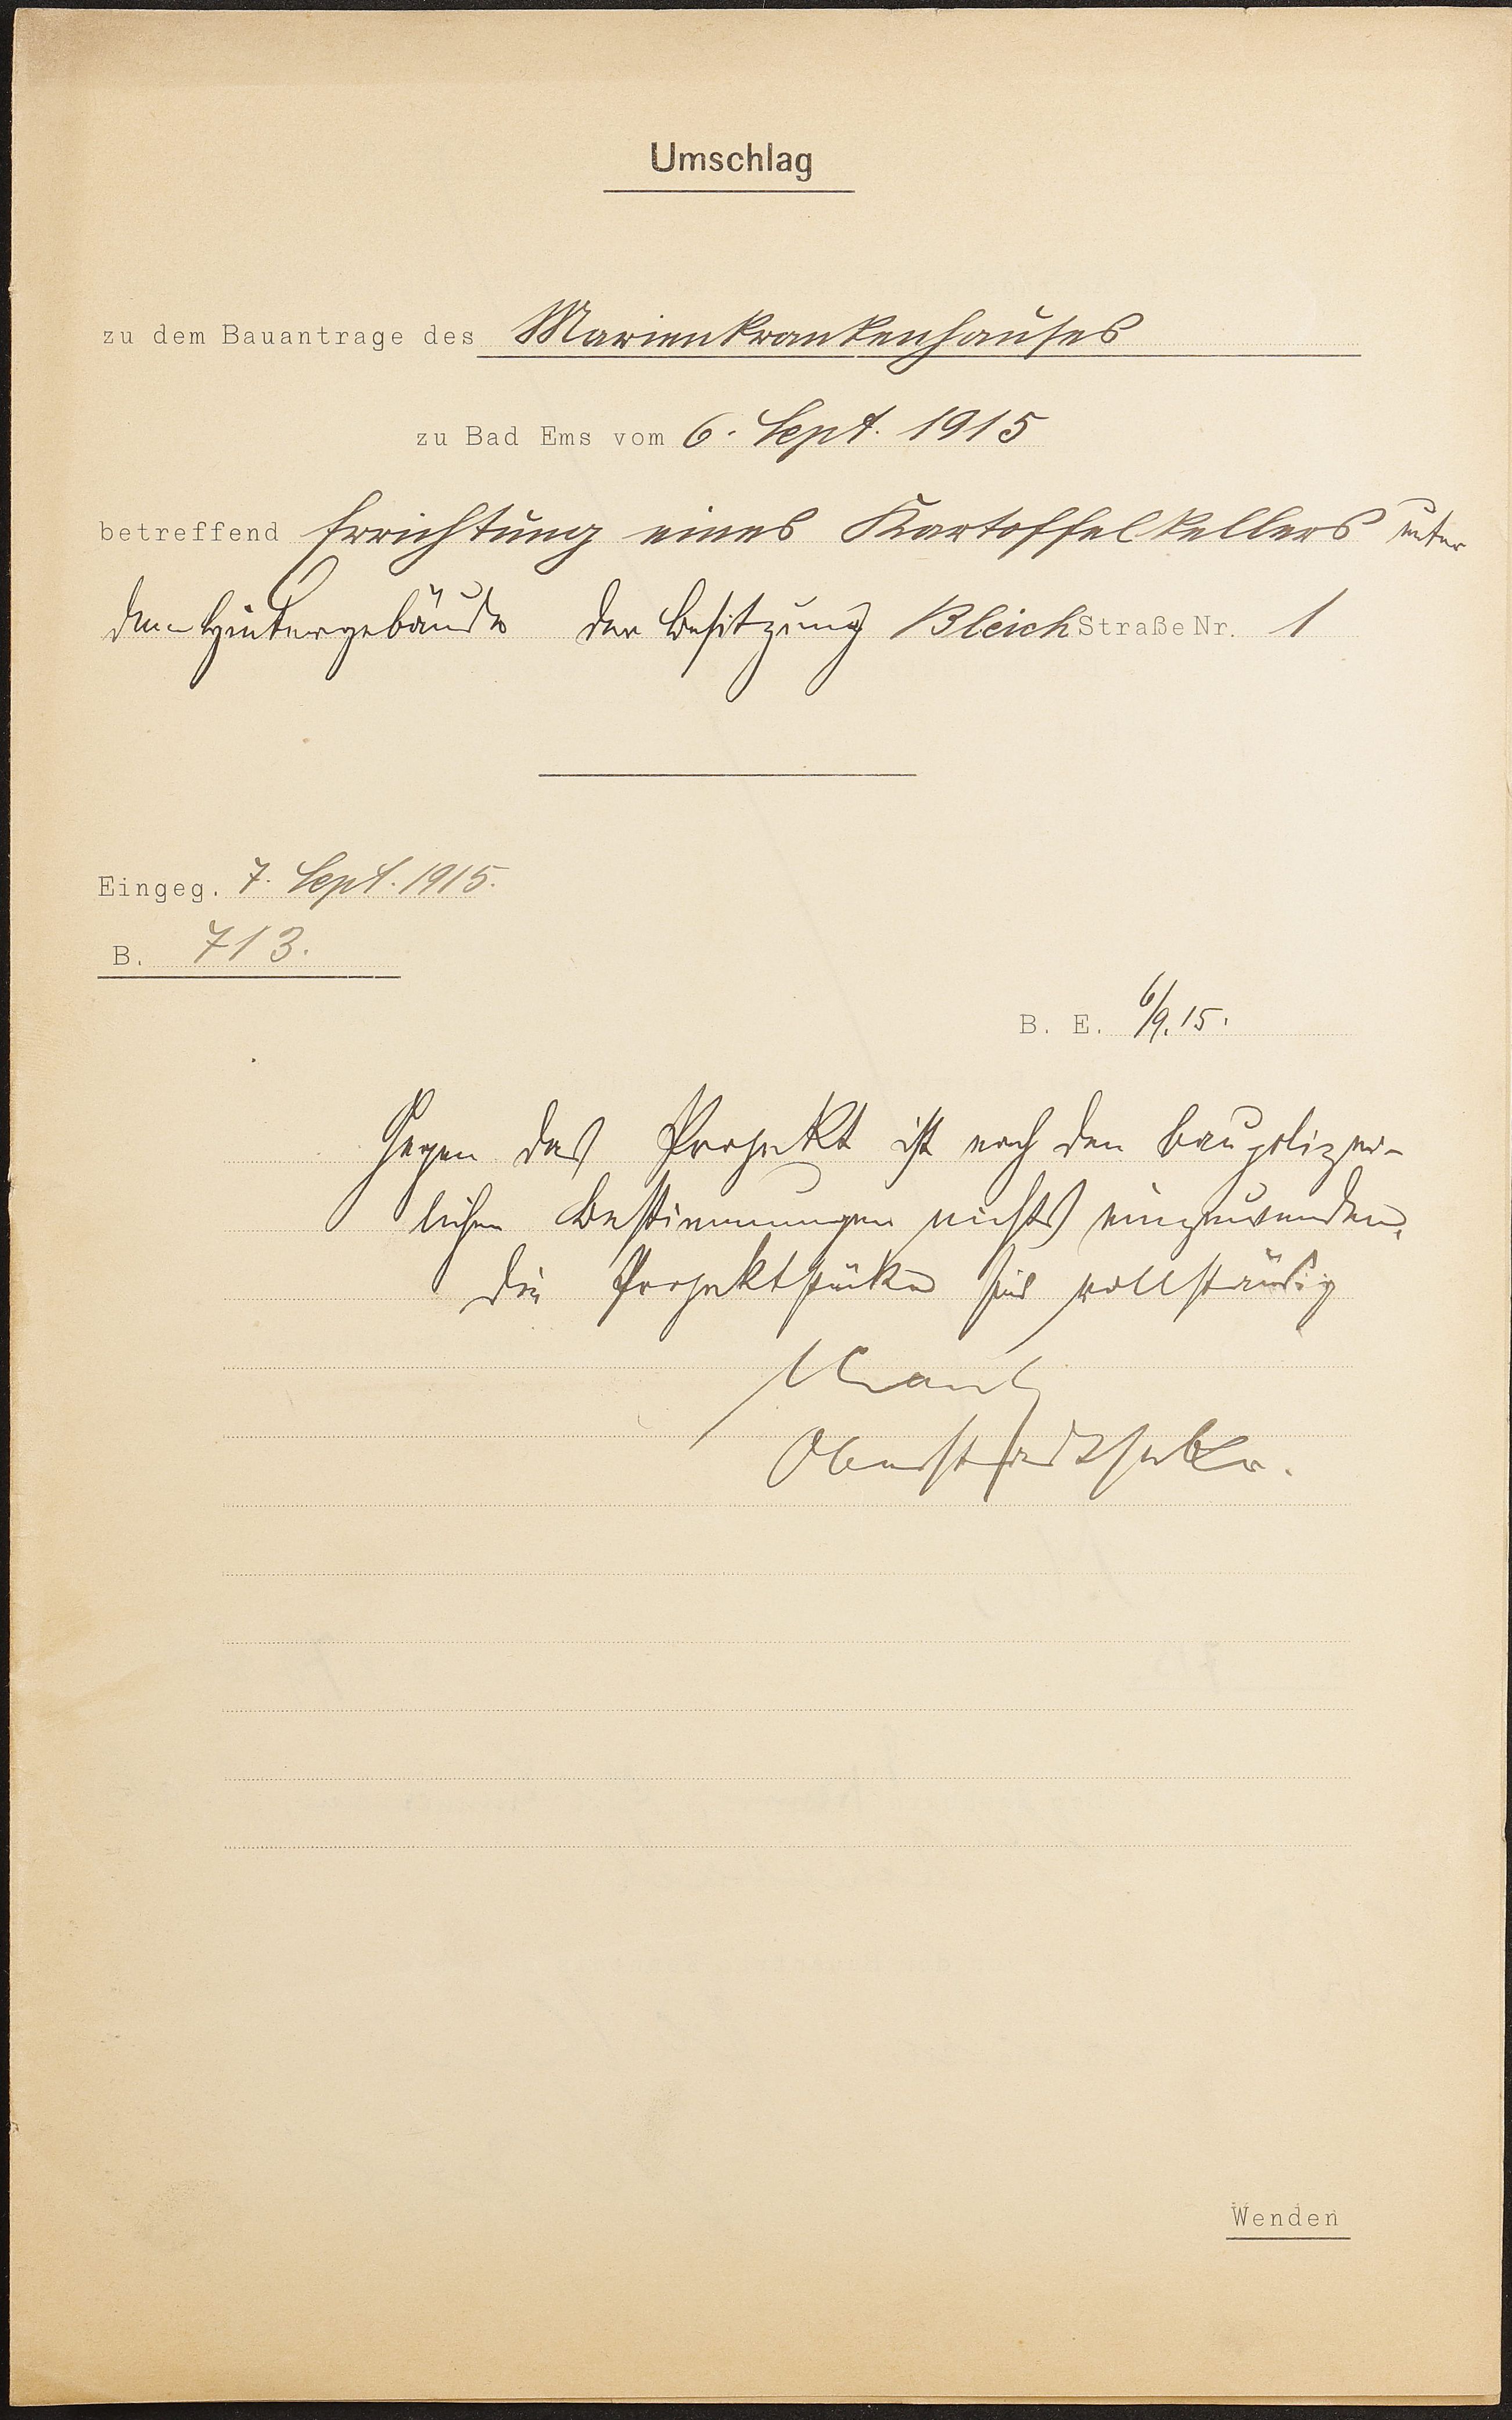 Umschlag
zu dem Bauantrage des Marienkrankenhauses
zu Bad Ems vom 6. Sept. 1915
betreffend Errichtung eines Kartoffelkellers unter
dem Hintergebäude der Besitzung Bleich Straße Nr. 1
Eingeg. 7. Sept. 1915.
B. 713.
B. E. 6/9. 15.
Gegen das Projekt ist nach den baupolizei-
lichen Bestimmungen nichts einzuwenden.
Die Projektstücke sind vollständig
Wenden